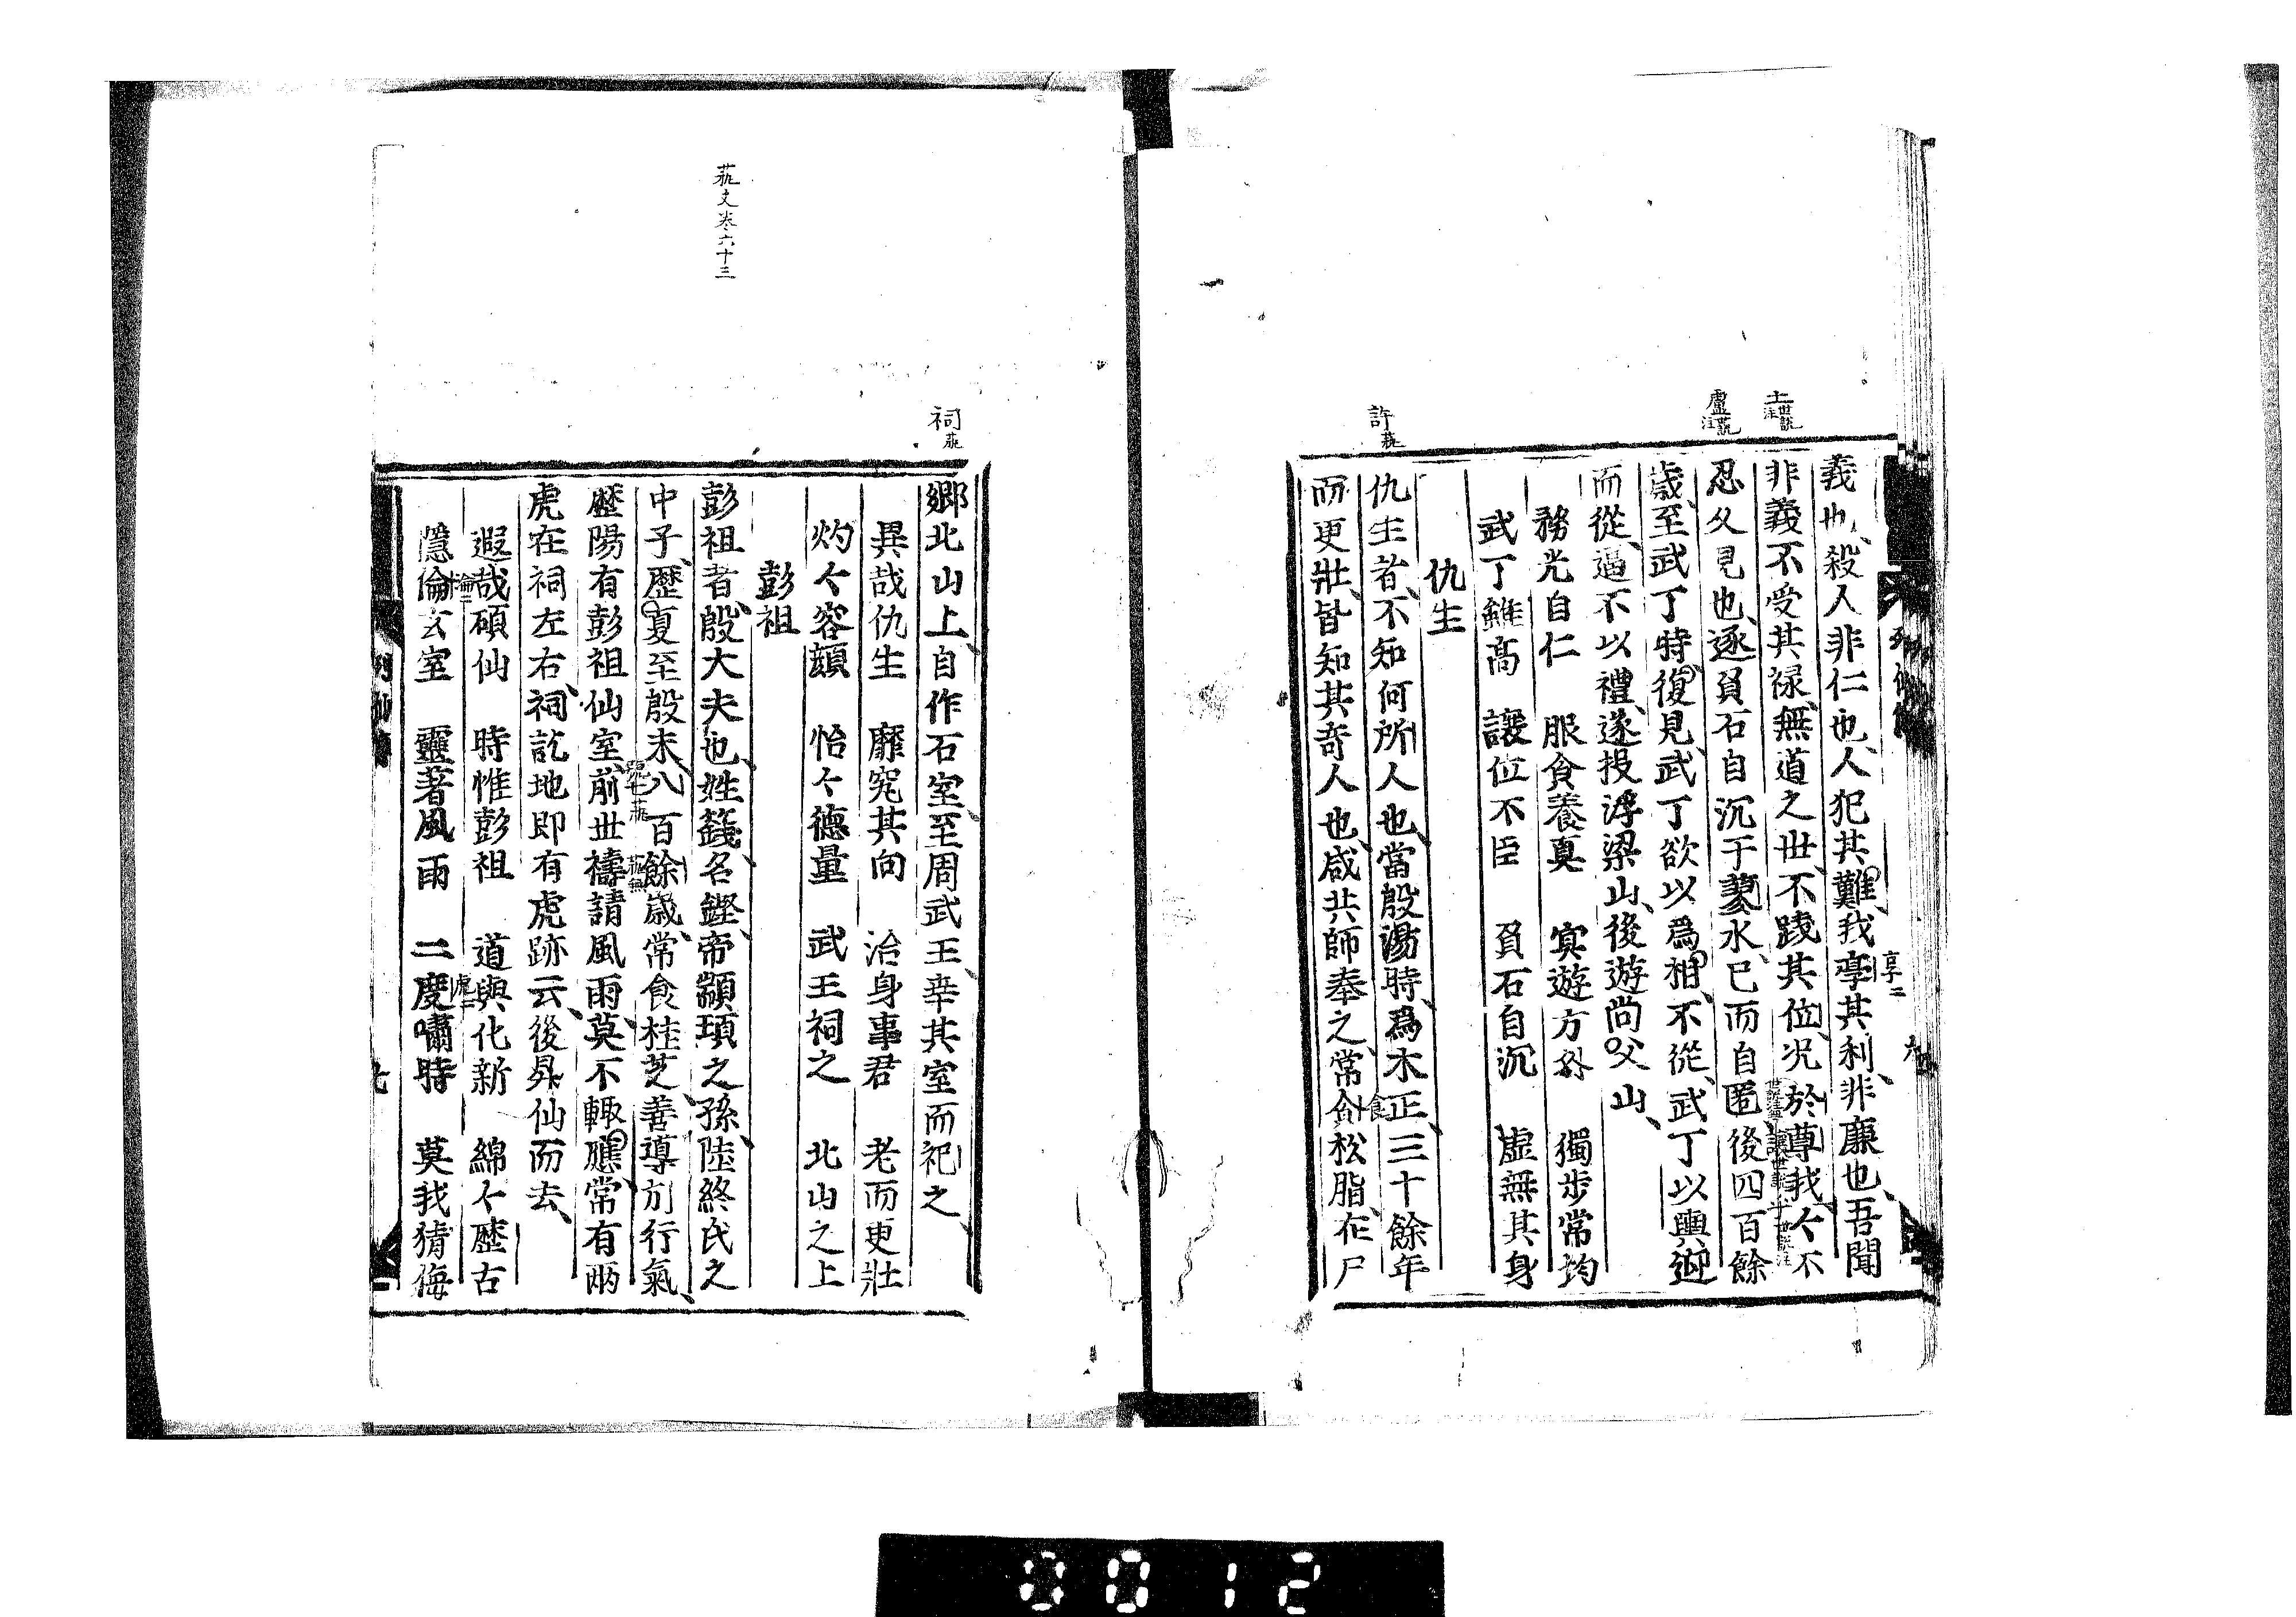 義也殺人非仁也人犯其難我享其利非廉也吾聞
非義不受其禄無道之世不踐其位况於尊我々不
忍久見也逐負石自沉于蓼水已而自匿後四百餘
歳至武丁時復見武丁欲以爲相不從武丁以輿迎
而從逼不以禮遂投浮梁山後遊尚父山
務光自仁　服食養真　冥遊方外　獨步常均
武丁雖高　讓位不臣　負石自沉　虚無其身
仇生
仇生者不知何所人也當殷湯時爲木正三十餘年
而更壯皆知其奇人也咸共師奉之常食松脂在尸
土 世説注
盧 世説注
許 藝
享
鄉北山上自作石室至周武王幸其室而祀之
異哉仇生　靡究其向　治身事君　老而更壯
灼々容顔　怡々德量　武王祠之　北山之上
彭祖
彭祖者殷大夫也姓籛名鏗帝顓頊之孫陸終氏之
中子歷夏至殷末八百餘歳常食桂芝善導引行氣
歷陽有彭祖仙室前世禱請風雨莫不輒應常有兩
虎在祠左右祠訖地即有虎跡云後昇仙而去
遐哉碩仙　時惟彭祖　道與化新　綿々歷古
隱倫玄室　靈著風雨　二虎嘯時　莫我猜侮
祠 藝
藝文卷六十三
0012